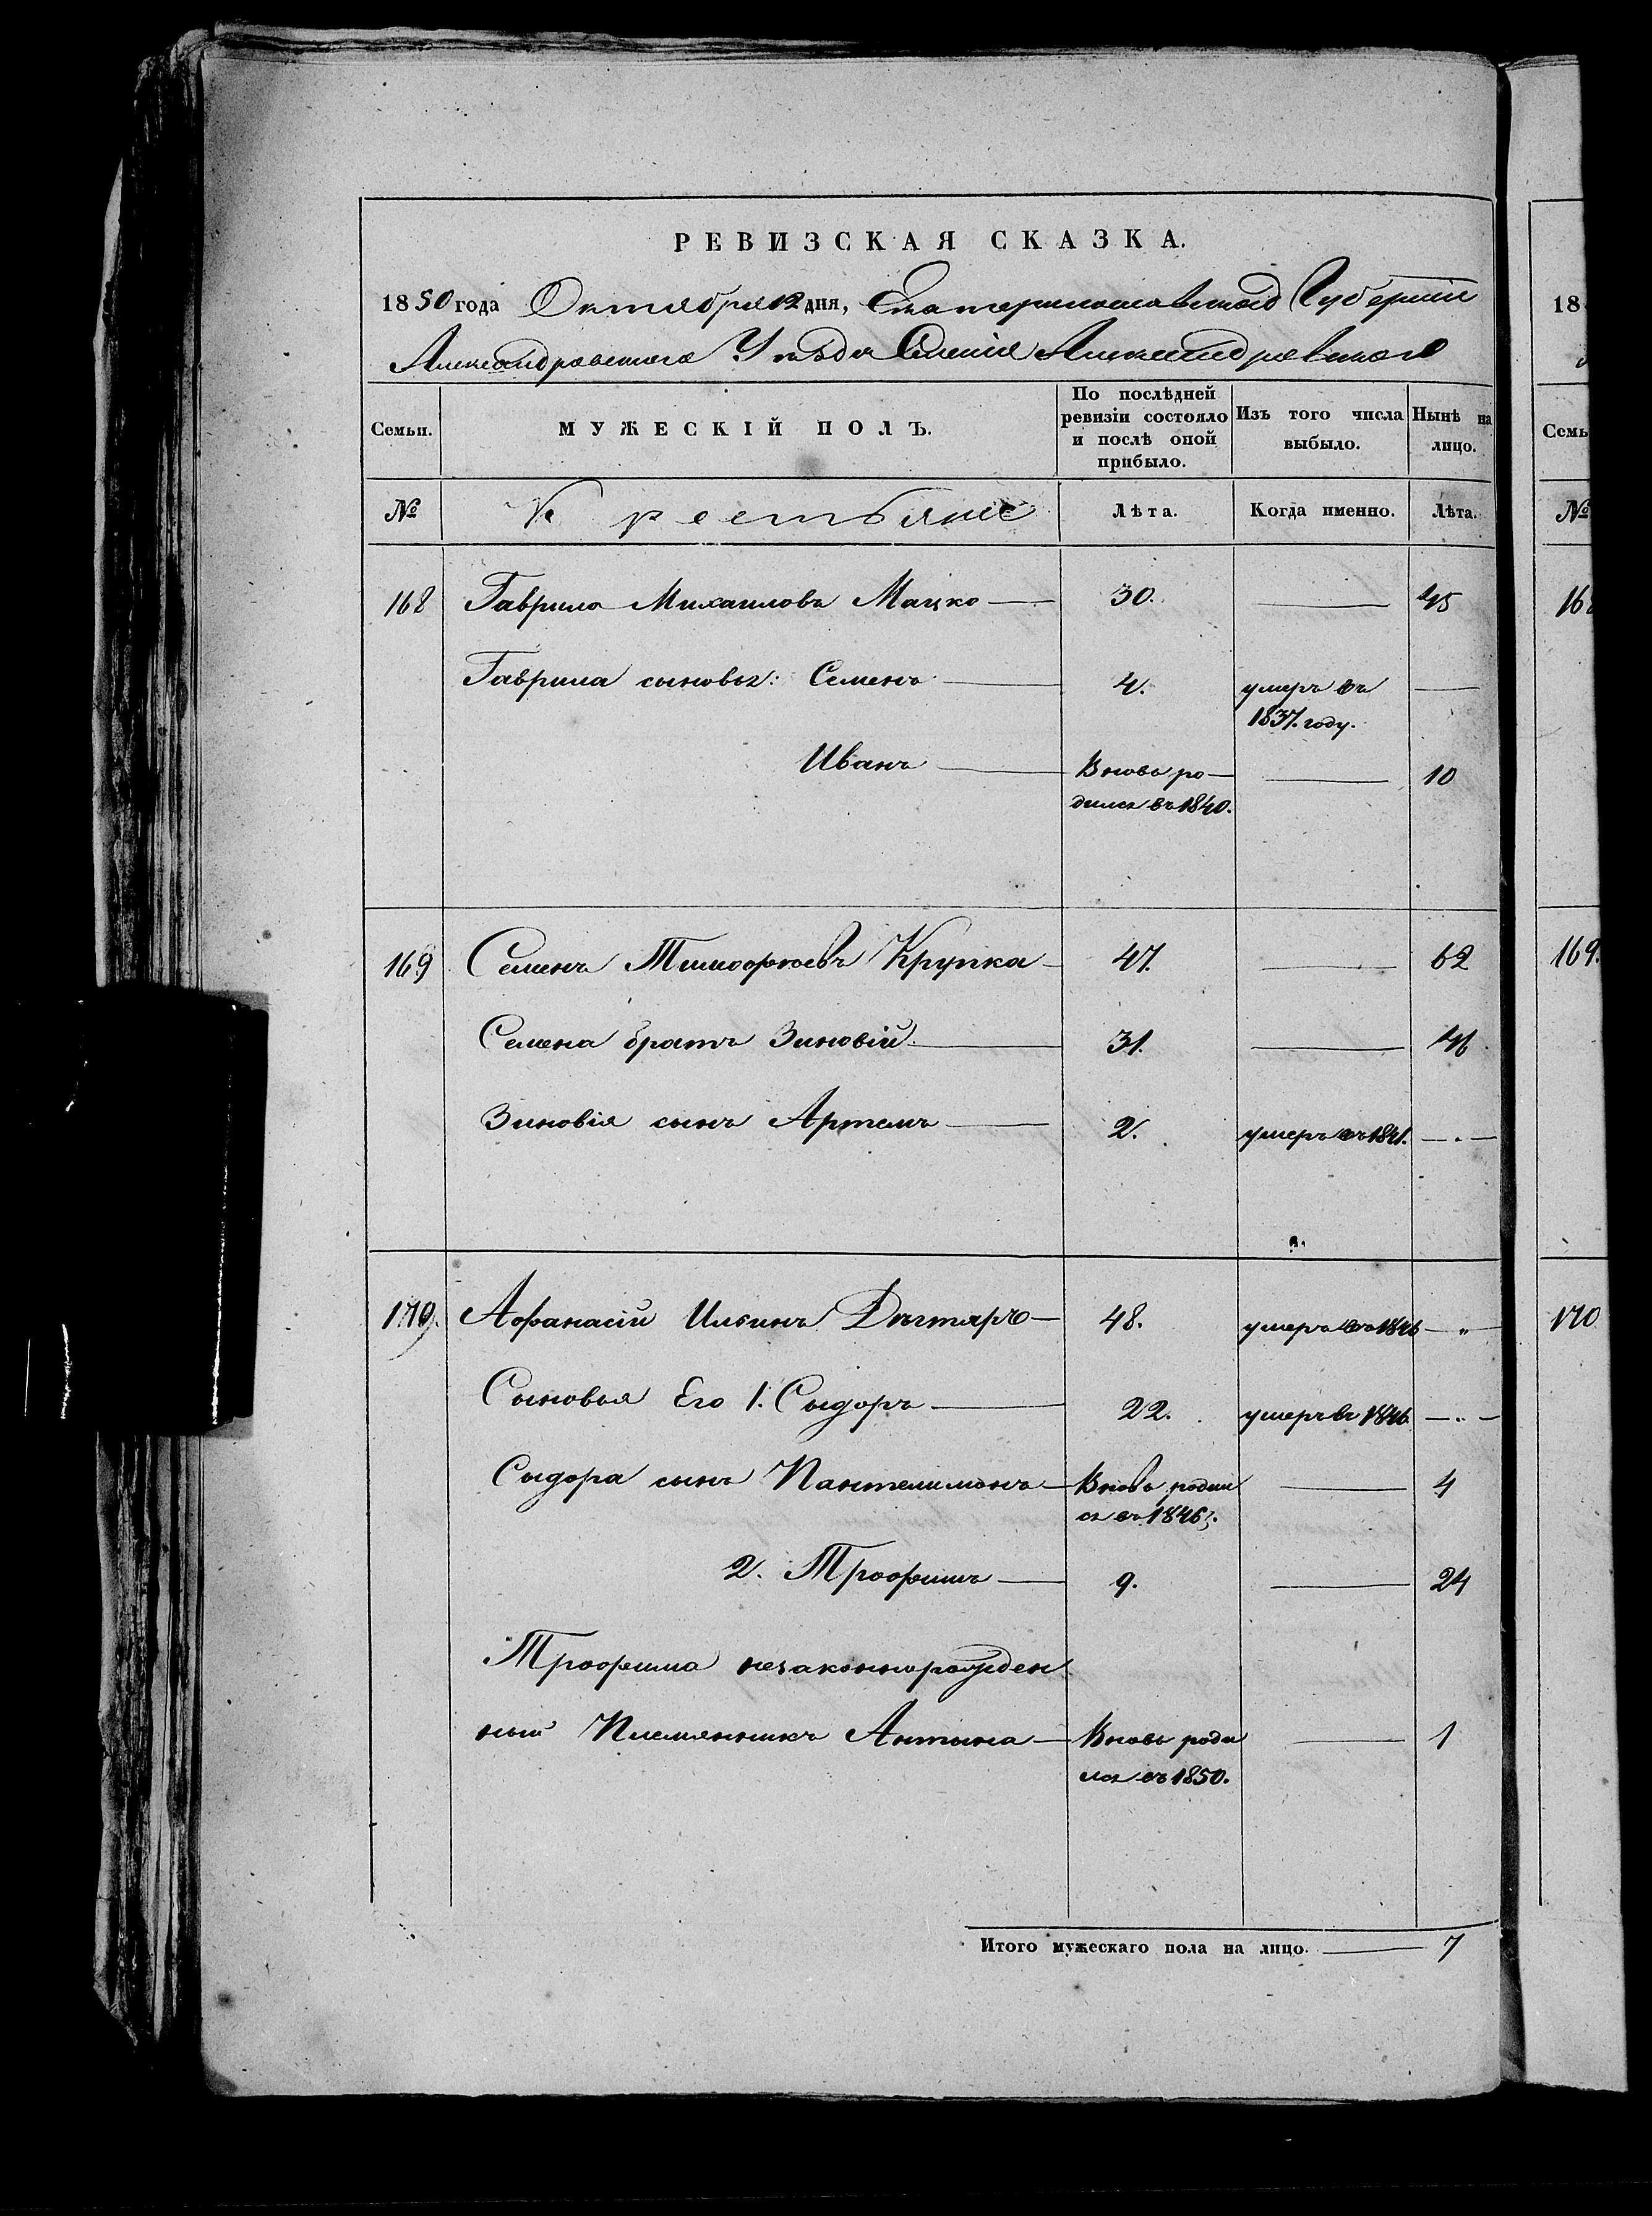 РЕВИЗСКАЯ СКАЗКА.
1850 года Октября 12 дня, Екатеринославской Губерніи
Александровскаго Уѣзда Селенія Александровскаго
Семьи. МУЖЕСКІЙ ПОЛЪ. По послѣдней ревизіи состояло и послѣ оной прибыло. Изъ того числа выбыло. Нынѣ на лицо.
№ Крестьяне Лѣта. Когда именно. Лѣта.
168 Гаврило Михаиловъ Мацко — 30. — 45
Гаврила сыновья: Семенъ — 4. умеръ въ —
1837. году.
Иванъ — Вновь ро- — 10
дился въ 1840.
169 Семенъ Тимофеевъ Крупка — 47. — 62
Семена братъ Зиновій — 31. — 46
Зиновія сынъ Артемъ — 2. умеръ въ 1841. — . —
170. Афанасій Ильинъ Дѣгтярь — 48. умеръ въ 1846 — „ —
Сыновья Его 1. Сыдоръ — 22. умеръ въ 1846. — „ —
Сыдора сынъ Пантелимонъ — Вновь родил — 4
ся въ 1846 г.
2. Трофимъ — 9. — 24
Трофима незаконнорожден
ный Племянникъ Антонъ — Вновь роди — 1
лся въ 1850.
Итого мужескаго пола на лицо. — 7
18
Семь
№
168
169.
170